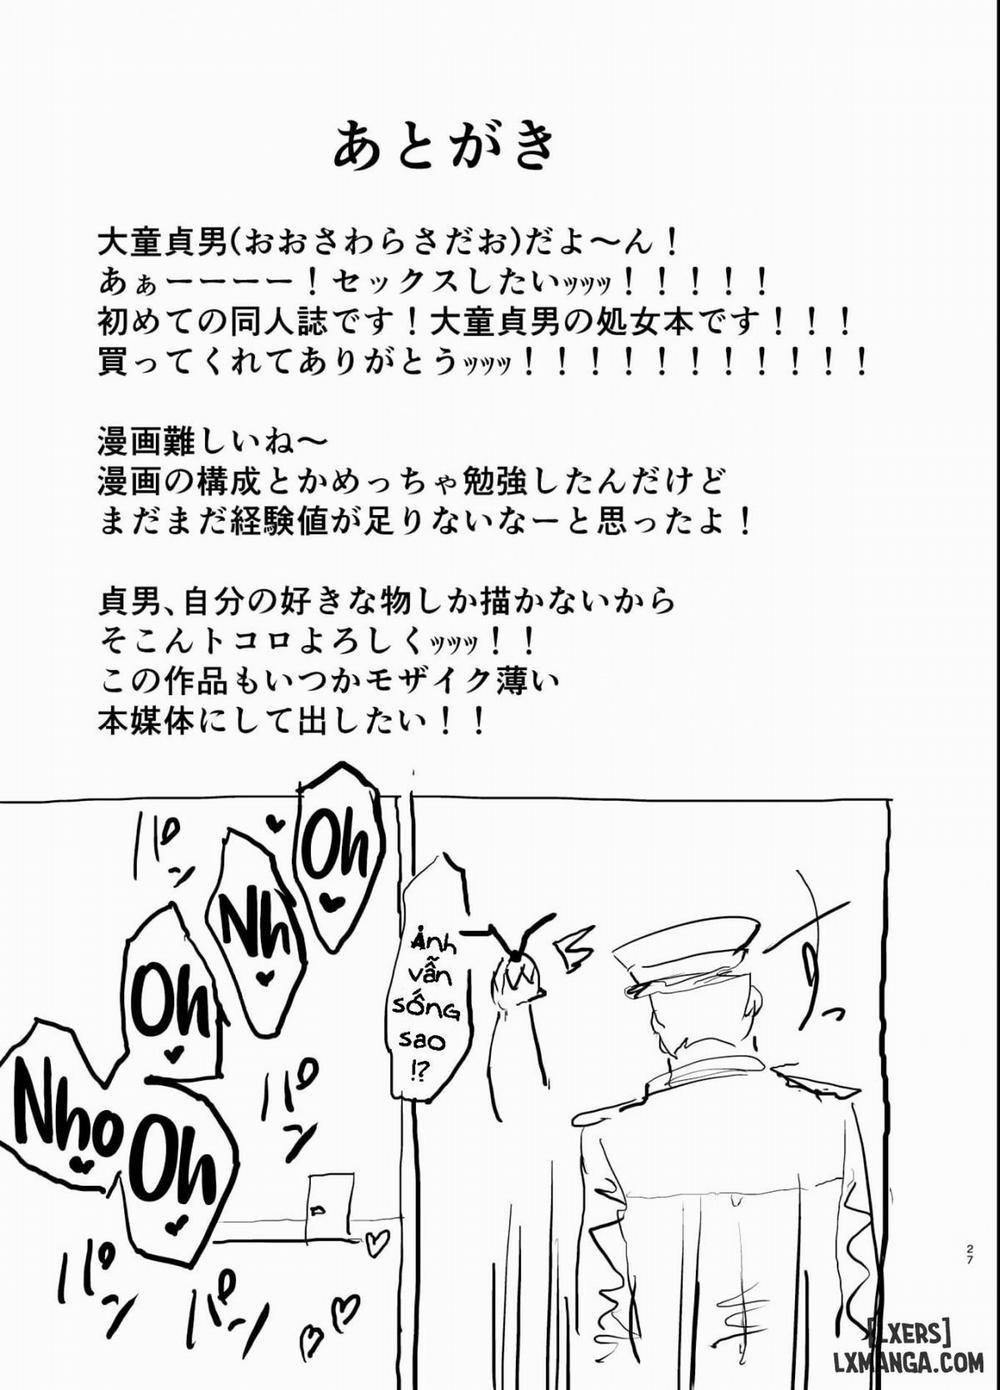 あとがき
大童貞男(おおさわらさだお)だよ〜ん！
あぁーーーー！セックスしたいッッッ！！！！！
初めての同人誌です！大童貞男の処女本です！！！
買ってくれてありがとうッッッ！！！！！！！！！！！
漫画難しいね〜
漫画の構成とかめっちゃ勉強したんだけど
まだまだ経験値が足りないなーと思ったよ！
貞男、自分の好きな物しか描かないから
そこんトコロよろしくッッッ！！
この作品もいつかモザイク薄い
本媒体にして出したい！！
Oh
パン
Nh
Ảnh
vẫn
sống
sao
!?
Oh
Nho
Oh
パン
パン
パン
27
[LXERS]
LXMANGA.COM